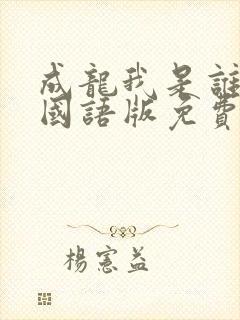 成龍我是誰
國語版免費
楊憲益